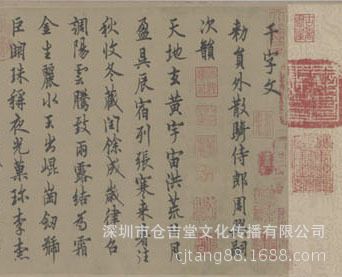 千字文
勅員外散騎侍郎周興嗣
次韻
天地玄黃宇宙洪荒日月
盈昃辰宿列張寒來暑往
秋收冬藏閏餘成歲律召
調陽雲騰致雨露結為霜
金生麗水玉出崑崗劍號
巨闕珠稱夜光菓珍李柰
深圳市仓吉堂文化传播有限公司
cjtang88.1688.com